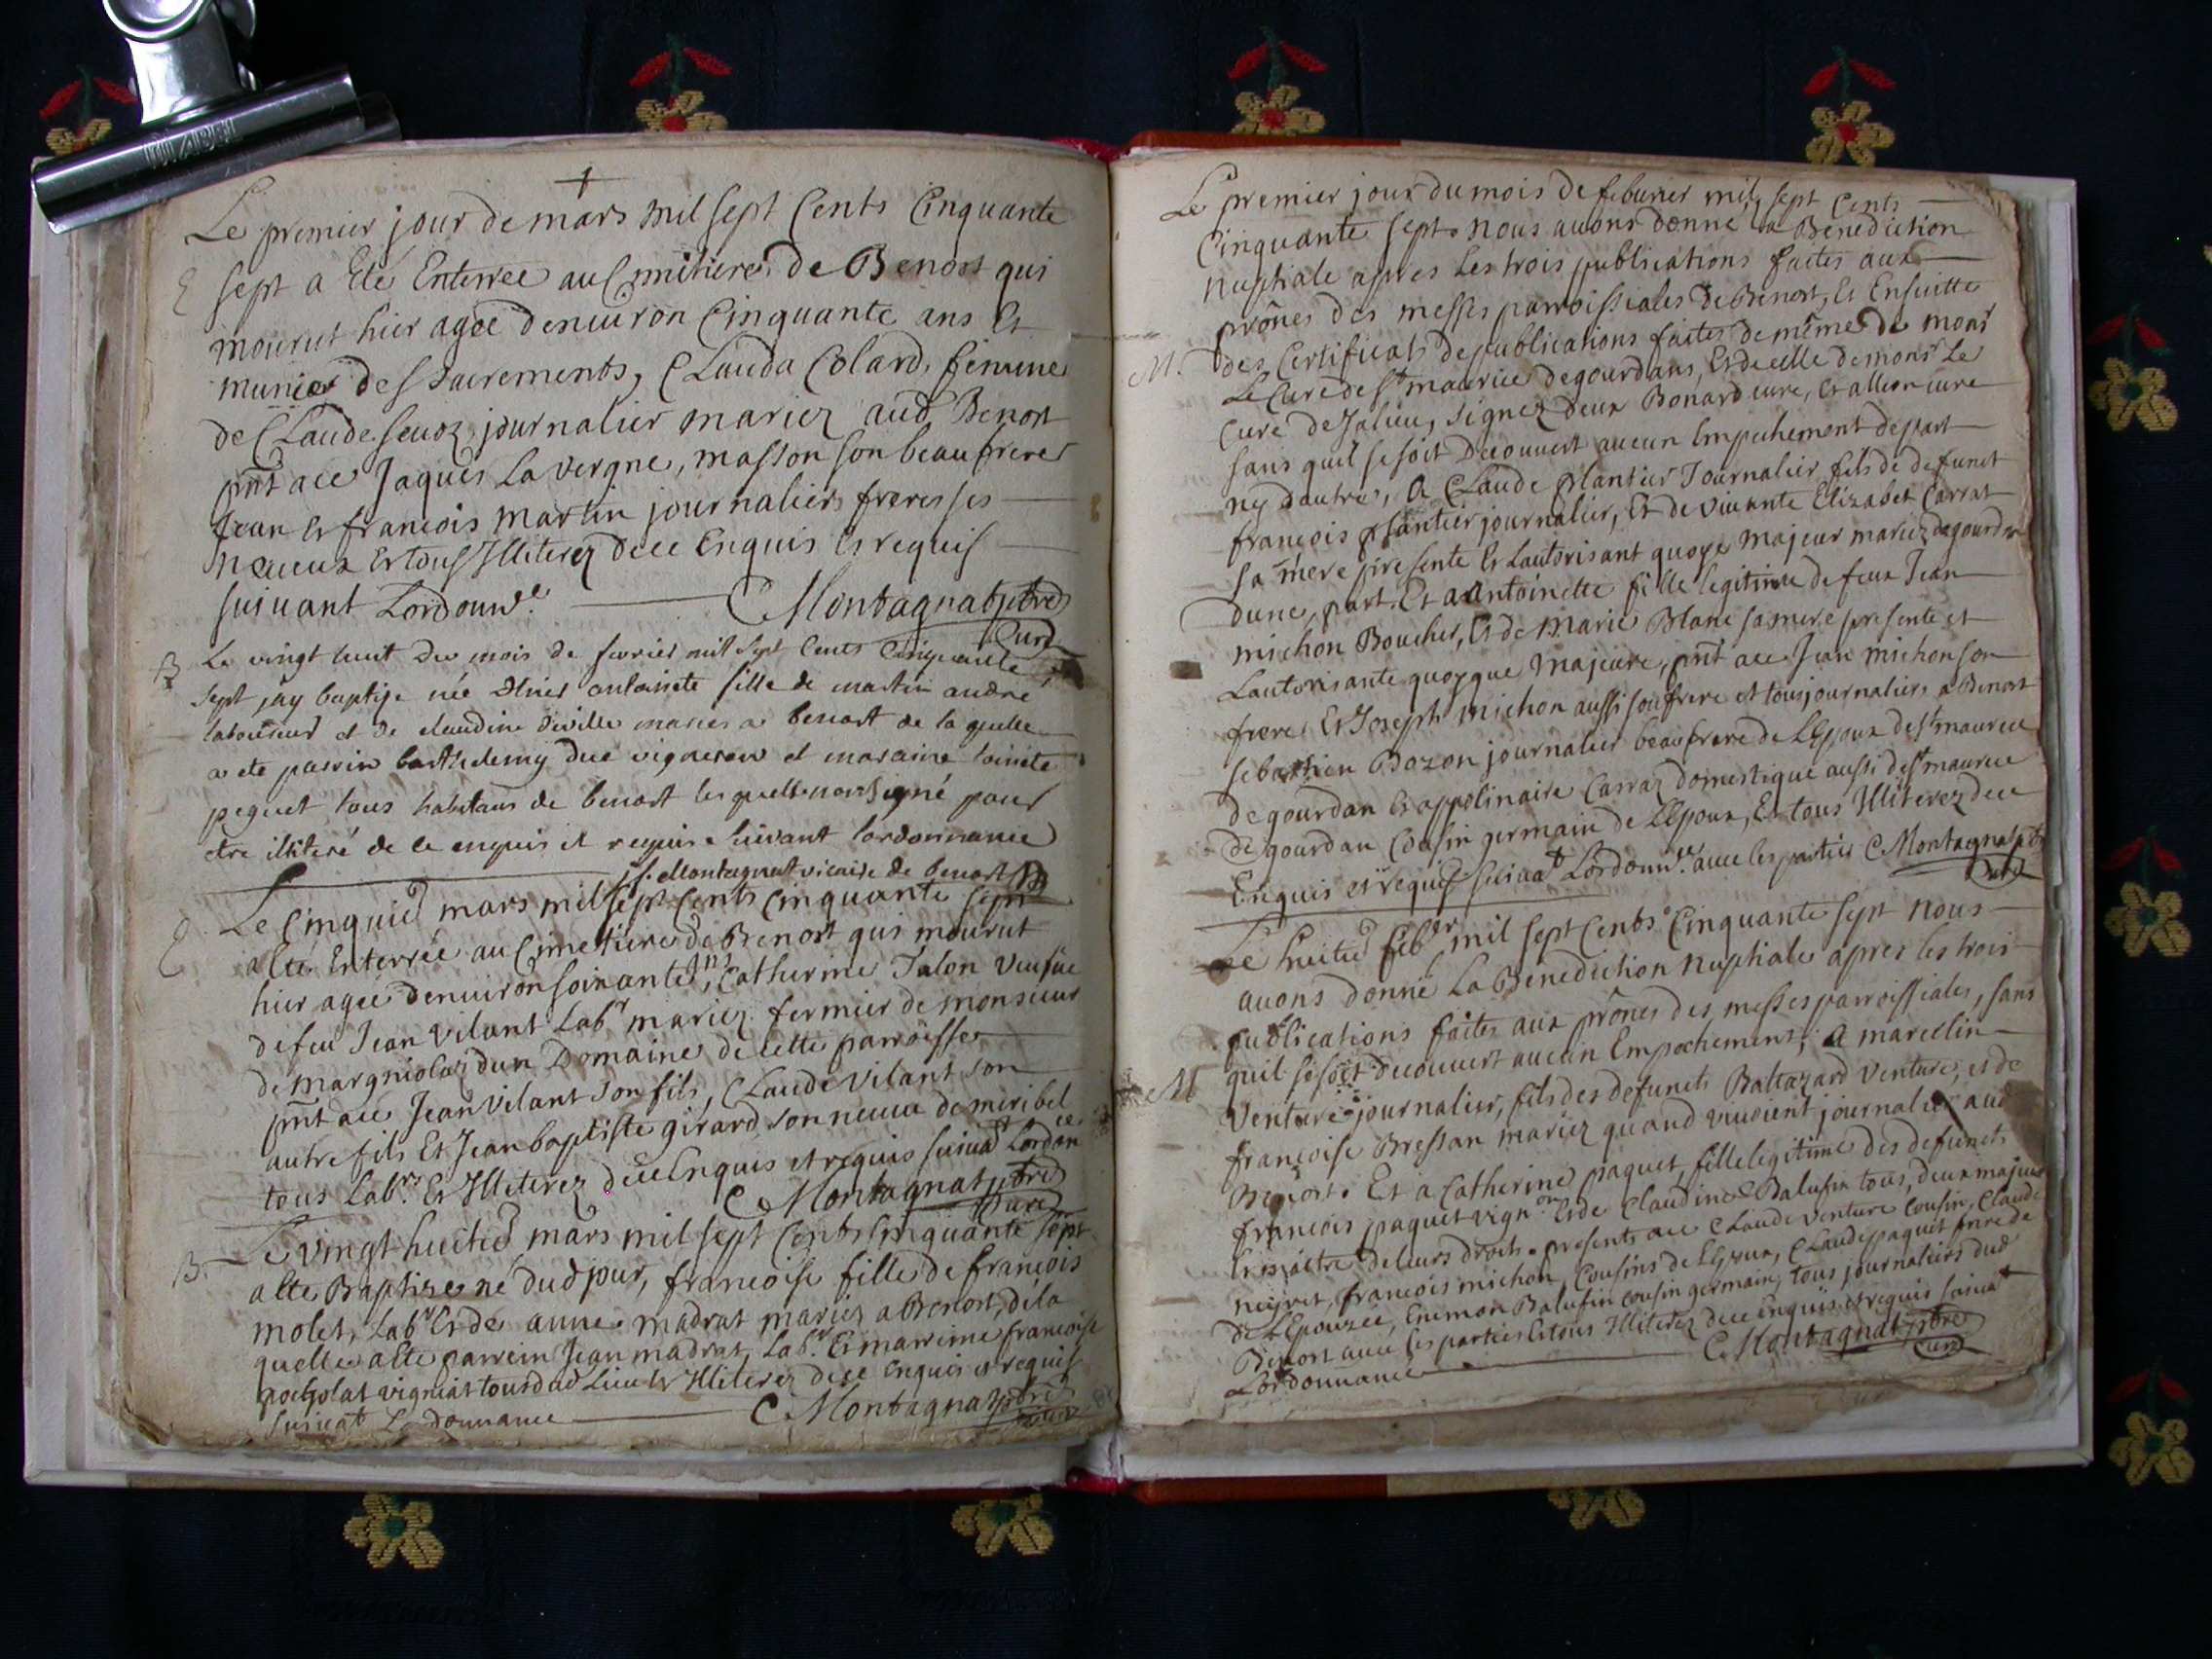 Le premier jour de mars mil sept Cents Cinquante
E sept a Eté Enterrée au Cimitiere de Benost qui
mourut hier agée denuiron Cinquante ans Et
munie des sacrements, Clauda Colard, femme
de Claude seuoz journalier mariez aud Benost
pnt ace Jaques La vergne, masson son beaufrere
Jean Et francois martin journaliers freres ses
neueux Et tous Illiterez dece Enquis Et requis
suiuant Lordounce. C Montagnat ptre
Curé
B Le vingt huit du mois de fevrier mil sept Cents Cinquante
sept jay baptise née antoinete fille de martin andre
laboureur et de claudine deville maries a benost de la quelle
a ete parrin barthelemy due vigneron et maraine
peguet tous habitans de benost les quells nont signé pour
etre illiteré de ce enquis et requis suivant lordonnance
j f. Montagnat vicaire de benost
Le Cinquie mars mil sept Cents Cinquante sept
E a Eté Enterrée au Cimetiere de Benost qui mourut
hier agee denuiron soixante ans, Catherine Talon Veufue
de feu Jean Vilant Labr mariez fermier de monsieur
de margniolaz dun Domaine de cette parroisse
pnt ace Jean Vilant son fils, Claude Vilant son
autre fils Et Jean baptiste girard son neueu de miribel
tous Labrs Et Illiterez dece Enquis et requis suiuat Lordonce
C Montagnat ptre
Curé
B. Le Vingt huitie mars mil sept Cents Cinquante sept
a Eté Baptizee né dud jour, francoise fille de francois
molet, Labr Et de anne madrat mariez a Benost, de la
quelle a Eté parrein Jean madrat, Labr. Et marreine francoise
vigniat tous dud Lieu Et Illiterez dece Enquis et requis
suiuat Lordonnance C Montagnat ptre
Le premier jour du mois de feburier mil sept Cents
Cinquante sept nous auons donné La Benediction
nuptiale apres Les trois publications faites aux
prônes des messes parroissiales de Benost, Et Ensuitte
M. des Certificats de publications faites de même de monsr
Le Curé de st maurice de gourdans, Et de celle de monsr Le
Curé de Jalieu, signez deux Bonard curé, Et allion curé
sans quil se soit Decouuert aucun Empechement depart
ny dautre, A Claude plantier Journalier fils de defunct
francois plantier journalier, Et de viuante Elizabet Carrat
sa mere presente Et Lautorisant quoyq Majeur mariez degourdan
dune, part. Et a Antoinette fille legitime de feux Jean
michon Boucher, Et de Marie Blanc sa mere presente et
Lautorisante quoyque Majeure, pnt ace Jean michon son
frere Et Joseph michon aussi son frere et tous journaliers a Benost
sebastien Bozon journalier beaufrere de LEpoux de st maurice
de gourdan Et appolinaire Carraz domestique aussi de st maurice
de gourdan Cousin germain de LEpoux, Et tous Illiterez dece
Enquis et requis suiuat Lordonnce auec les parties C Montagnat ptre
Curé
Le huitie febr mil sept Cents Cinquante sept nous
auons donné La Benediction nuptiale apres les trois
publications faites aux prônes des messes parroissiales, sans
quil se soit decouuert aucun Empechement, A marcelin
M Venture journalier, fils des defuncts Baltazard Venture, et de
francoise Bressan mariez quand viuoient journaliers aud
Benost. Et a Catherine paquet, fille legitime des defuncts
francois paquet vignon Et de Claudine Balufin tous, deux majeurs
Et maitre de leurs droits. presents ace Claude Venture Cousin, Claude
neyret, francois michon, Cousins de LEpoux, Claude paquet frere de
de LEpouzée, Enemon Balufin cousin germain, tous journaliers dud
Benost auec les parties Et tous Illiterez dece Enquis et requis suiuat
Lordonnance C Montagnat ptre
Curé